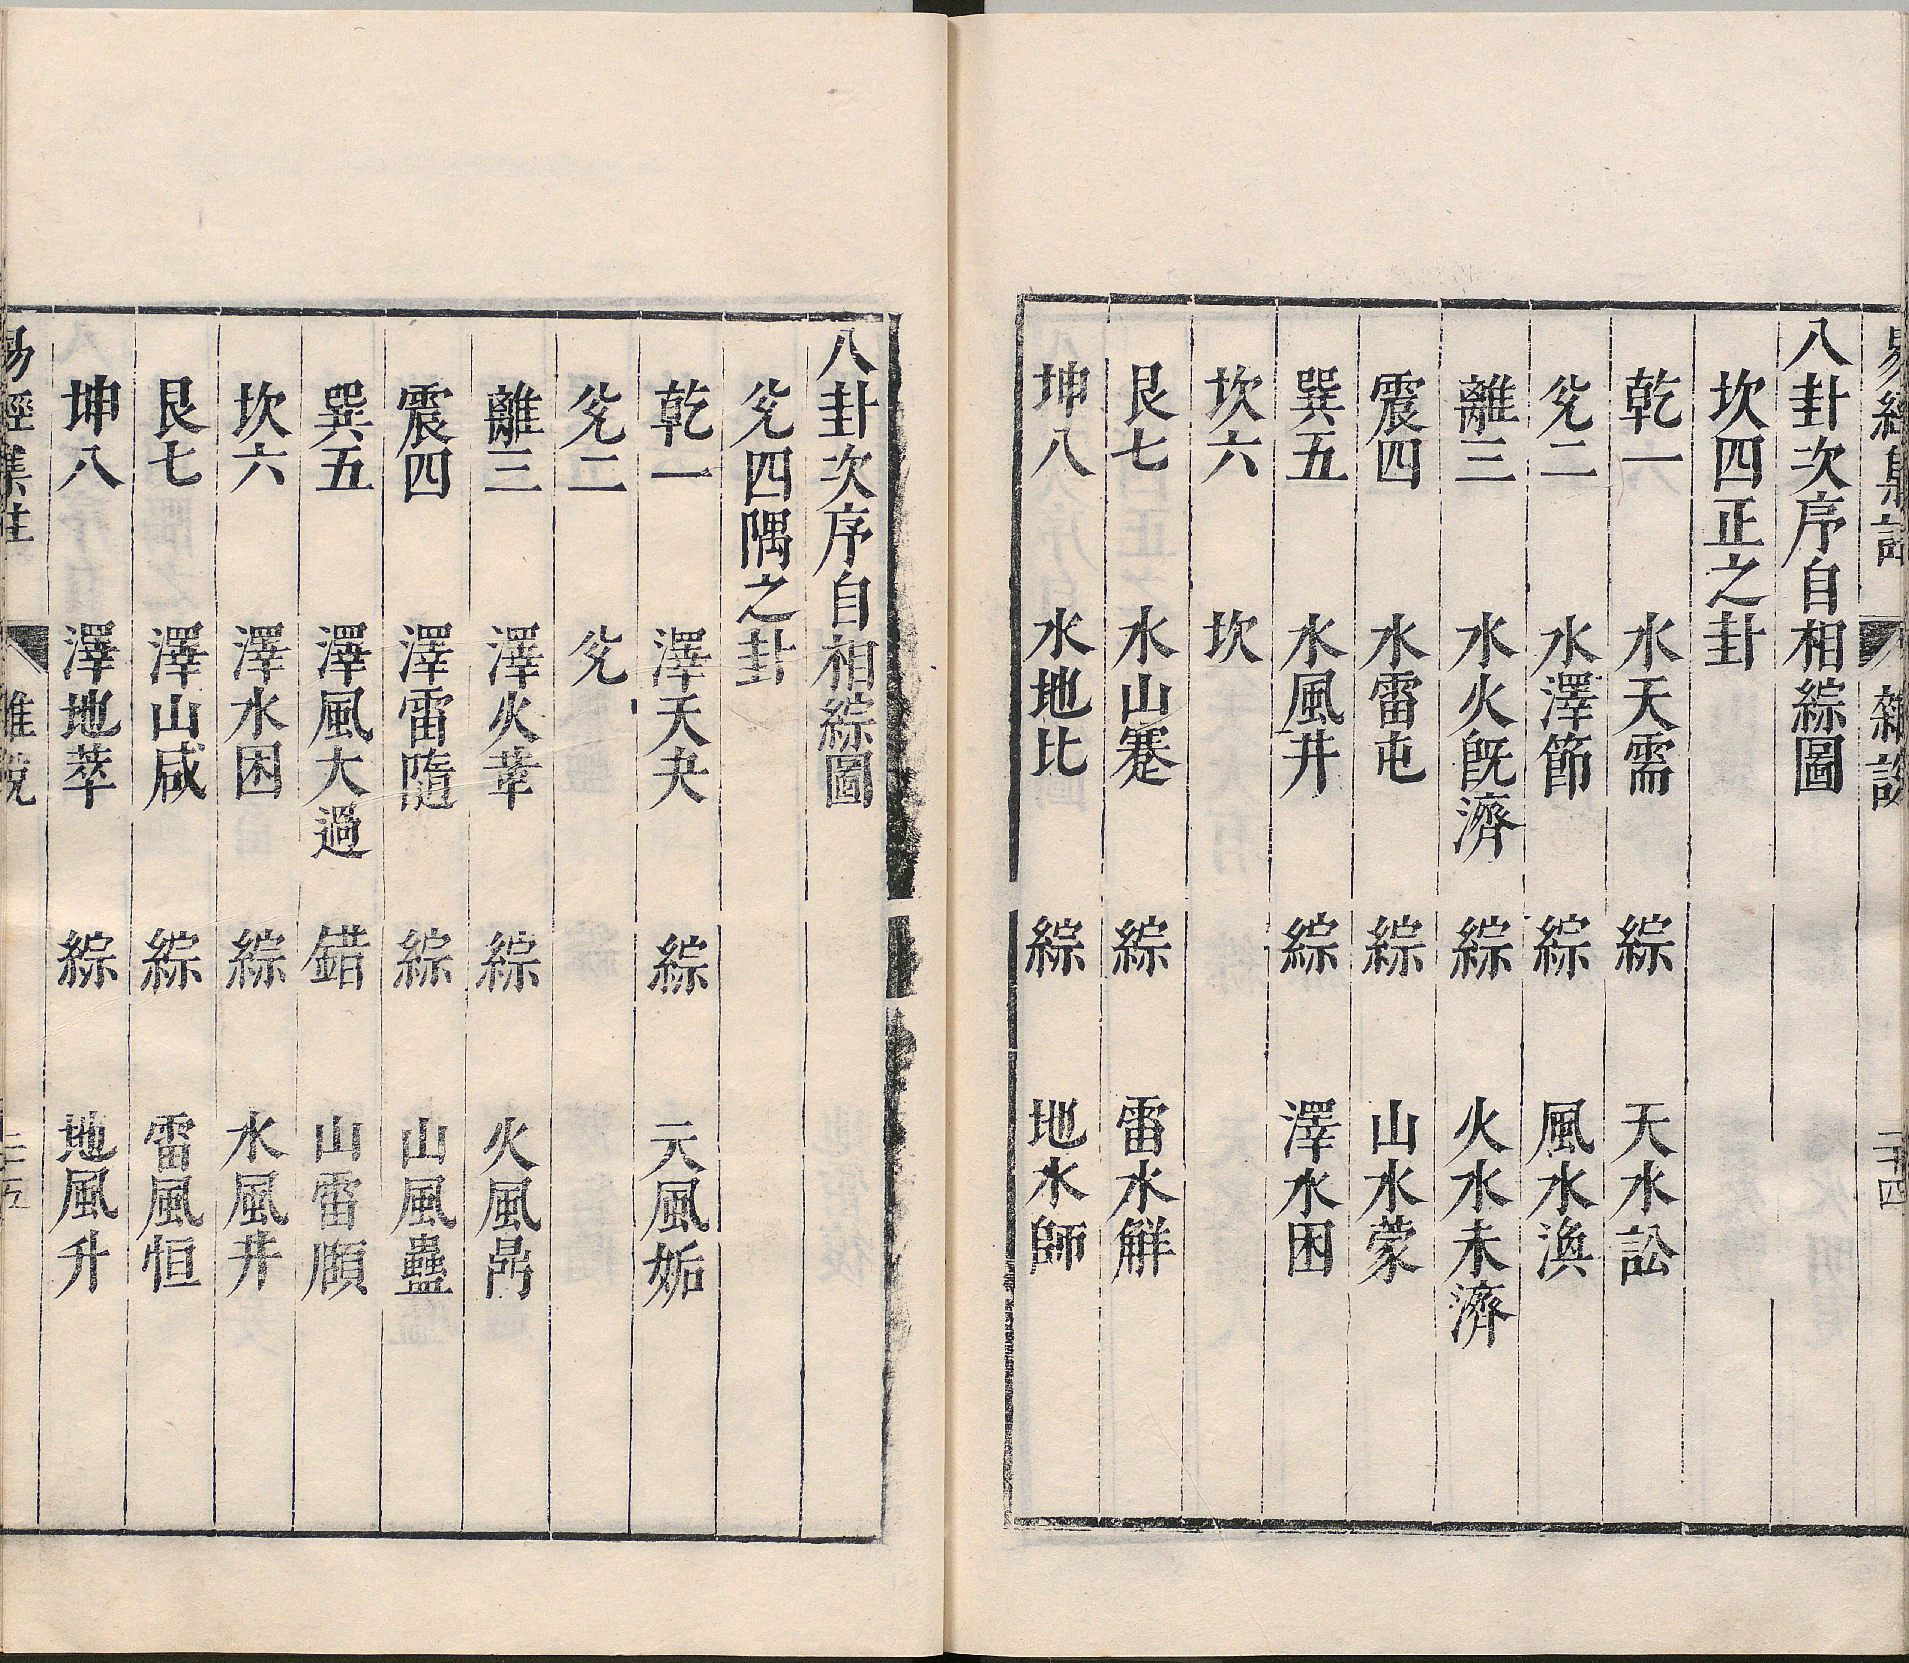 易經集註 雜說 二十四
八卦次序自相綜圖
坎四正之卦
乾一 水天需 綜 天水訟
兊二 水澤節 綜 風水渙
離三 水火旣濟 綜 火水未濟
震四 水雷屯 綜 山水蒙
巽五 水風井 綜 澤水困
坎六 坎
艮七 水山蹇 綜 雷水觧
坤八 水地比 綜 地水師
八卦次序自相綜圖
兊四隅之卦
乾一 澤天夬 綜 元風姤
兊二 兊
離三 澤火革 綜 火風鼎
震四 澤雷隨 綜 山風蠱
巽五 澤風大過 錯 山雷頤
坎六 澤水困 綜 水風井
艮七 澤山咸 綜 雷風恒
坤八 澤地萃 綜 地風升
易經集註 雜說 二十五